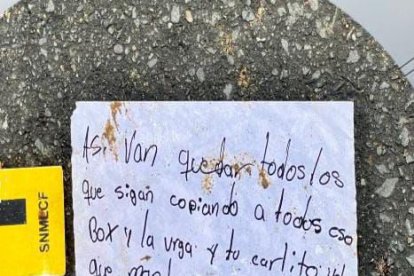 Asi van quedar todos los
que sigan copiando a todos eso
Box y la urga y tu carlito
que
SNMECF